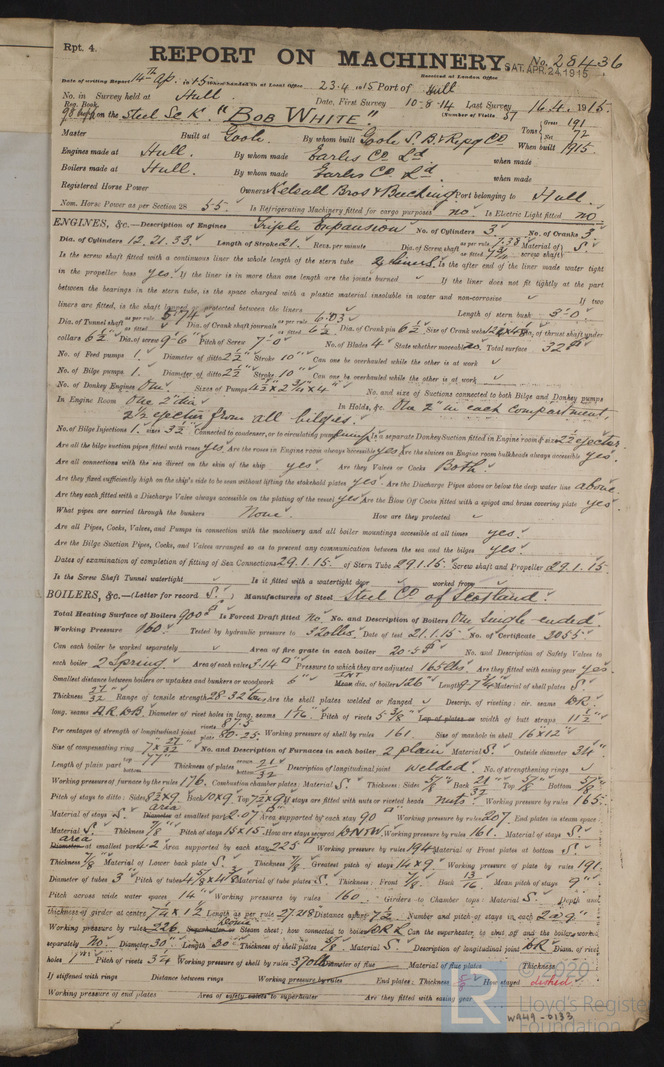 Rpt. 4.
REPORT ON MACHINERY.
No. 28436
SAT. APR. 24 1915
Date of writing Report 14th Ap. 1915 When handed in at Local Office 23.4.1915 Port of Hull
Received at London Office
No. in Survey held at Hull Date, First Survey 10-8-14 Last Survey 16.4.1915
Reg. Book. (Number of Visits 57
on the Steel Sc K. "BOB WHITE" Tons Gross 191 Net 72
Master Built at Goole By whom built Goole S. B & Repg Co When built 1915
Engines made at Hull. By whom made Earles Co Ld when made
Boilers made at Hull. By whom made Earles Co Ld when made
Registered Horse Power Owners Kelsall Bros & Beeching Port belonging to Hull
Nom. Horse Power as per Section 28 55. Is Refrigerating Machinery fitted for cargo purposes no. Is Electric Light fitted no
ENGINES, &c.—Description of Engines Triple Expansion No. of Cylinders 3 No. of Cranks 3
Dia. of Cylinders 12, 21, 33. Length of Stroke 21. Revs. per minute Dia. of Screw shaft as per rule 7.38 as fitted 7 3/4 Material of screw shaft S
Is the screw shaft fitted with a continuous liner the whole length of the stern tube 2 liners Is the after end of the liner made water tight
in the propeller boss yes. If the liner is in more than one length are the joints burned If the liner does not fit tightly at the part
between the bearings in the stern tube, is the space charged with a plastic material insoluble in water and non-corrosive If two
liners are fitted, is the shaft lapped or protected between the liners Length of stern bush 3'-0"
Dia. of Tunnel shaft as per rule 5.74 as fitted Dia. of Crank shaft journals as per rule 6.03 as fitted 6 1/2 Dia. of Crank pin 6 1/2 Size of Crank webs Dia. of thrust shaft under
collars 6 1/2 Dia. of screw 9'-6" Pitch of Screw 7'-0" No. of Blades 4 State whether moveable no. Total surface 32
No. of Feed pumps 1. Diameter of ditto 2 1/2 Stroke 10" Can one be overhauled while the other is at work
No. of Bilge pumps 1. Diameter of ditto 2 1/2 Stroke 10" Can one be overhauled while the other is at work
No. of Donkey Engines One Sizes of Pumps No. and size of Suctions connected to both Bilge and Donkey pumps
In Engine Room One 2" dia In Holds, &c. One 2" in each compartment
2 1/2 ejector from all bilges.
No. of Bilge Injections 1 sizes 3 1/2 Connected to condenser, or to circulating pump pump Is a separate Donkey Suction fitted in Engine room & size 2 1/2 ejector
Are all the bilge suction pipes fitted with roses yes Are the roses in Engine room always accessible yes Are the sluices on Engine room bulkheads always accessible yes
Are all connections with the sea direct on the skin of the ship yes Are they Valves or Cocks Both
Are they fixed sufficiently high on the ship's side to be seen without lifting the stokehold plates yes. Are the Discharge Pipes above or below the deep water line above
Are they each fitted with a Discharge Valve always accessible on the plating of the vessel yes Are the Blow Off Cocks fitted with a spigot and brass covering plate yes
What pipes are carried through the bunkers None. How are they protected
Are all Pipes, Cocks, Valves, and Pumps in connection with the machinery and all boiler mountings accessible at all times yes.
Are the Bilge Suction Pipes, Cocks, and Valves arranged so as to prevent any communication between the sea and the bilges yes.
Dates of examination of completion of fitting of Sea Connections 29.1.15. of Stern Tube 29.1.15. Screw shaft and Propeller 29.1.15.
Is the Screw Shaft Tunnel watertight Is it fitted with a watertight door worked from
BOILERS, &c.—(Letter for record S.) Manufacturers of Steel Steel Co of Scotland.
Total Heating Surface of Boilers 900 Is Forced Draft fitted No. No. and Description of Boilers One Single ended.
Working Pressure 160. Tested by hydraulic pressure to 320 lbs. Date of test 21.1.15. No. of Certificate 3055
Can each boiler be worked separately Area of fire grate in each boiler 20.5 No. and Description of Safety Valves to
each boiler 2 Spring. Area of each valve 3.14 Pressure to which they are adjusted 165 lbs. Are they fitted with easing gear yes.
Smallest distance between boilers or uptakes and bunkers or woodwork 6" Mean dia. of boilers 126" Length 9-7 3/4 Material of shell plates S
Thickness 27/32 Range of tensile strength 28.32 tons Are the shell plates welded or flanged Descrip. of riveting: cir. seams DR.
long. seams DR DB. Diameter of rivet holes in long. seams 1 1/16 Pitch of rivets 5 3/8 Lap of plates or width of butt straps 11 1/2
Per centages of strength of longitudinal joint rivets 87.5 plate 80.25 Working pressure of shell by rules 161. Size of manhole in shell 16x12"
Size of compensating ring 7 x 27/32 No. and Description of Furnaces in each boiler 2 plain Material S. Outside diameter 34"
Length of plain part top 77" bottom Thickness of plates crown 21/32 bottom Description of longitudinal joint welded. No. of strengthening rings
Working pressure of furnace by the rules 176. Combustion chamber plates: Material S. Thickness: Sides 5/8 Back 21/32 Top 5/8 Bottom 5/8
Pitch of stays to ditto: Sides 8 1/2 x 9 Back 10 x 9 Top 7 1/2 x 9 If stays are fitted with nuts or riveted heads nuts. Working pressure by rules 165.
Material of stays S. area Diameter at smallest part 2.07 Area supported by each stay 90 Working pressure by rules 207. End plates in steam space:
Material S. Thickness 7/8 Pitch of stays 15x15. How are stays secured DNSW. Working pressure by rules 161. Material of stays S.
area Diameter at smallest part Area supported by each stay 225 Working pressure by rules 194 Material of Front plates at bottom S.
Thickness 7/8 Material of Lower back plate S. Thickness 7/8 Greatest pitch of stays 14x9. Working pressure of plate by rules 191.
Diameter of tubes 3" Pitch of tubes Material of tube plates S. Thickness: Front 7/8 Back 13/16 Mean pitch of stays 9"
Pitch across wide water spaces 14" Working pressures by rules 160. Girders to Chamber tops: Material S. Depth and
thickness of girder at centre 7 1/4 x 1 1/2 Length as per rule 27.218 Distance apart 7 1/2 Number and pitch of stays in each 2 @ 9".
Working pressure by rules 226. Dome Superheater or Steam chest; how connected to boiler DRK Can the superheater be shut off and the boiler worked
separately No. Diameter 30" Length 30" Thickness of shell plates 5/8 Material S Description of longitudinal joint DR Diam. of rivet
holes 1" Pitch of rivets 3 1/4 Working pressure of shell by rules 370 lbs Diameter of flue Material of flue plates Thickness
If stiffened with rings Distance between rings Working pressure by rules End plates: Thickness How stayed dished
Working pressure of end plates Area of safety valves to superheater Are they fitted with easing gear
© 2020
LR
Lloyd's Register
Foundation
W949-0133